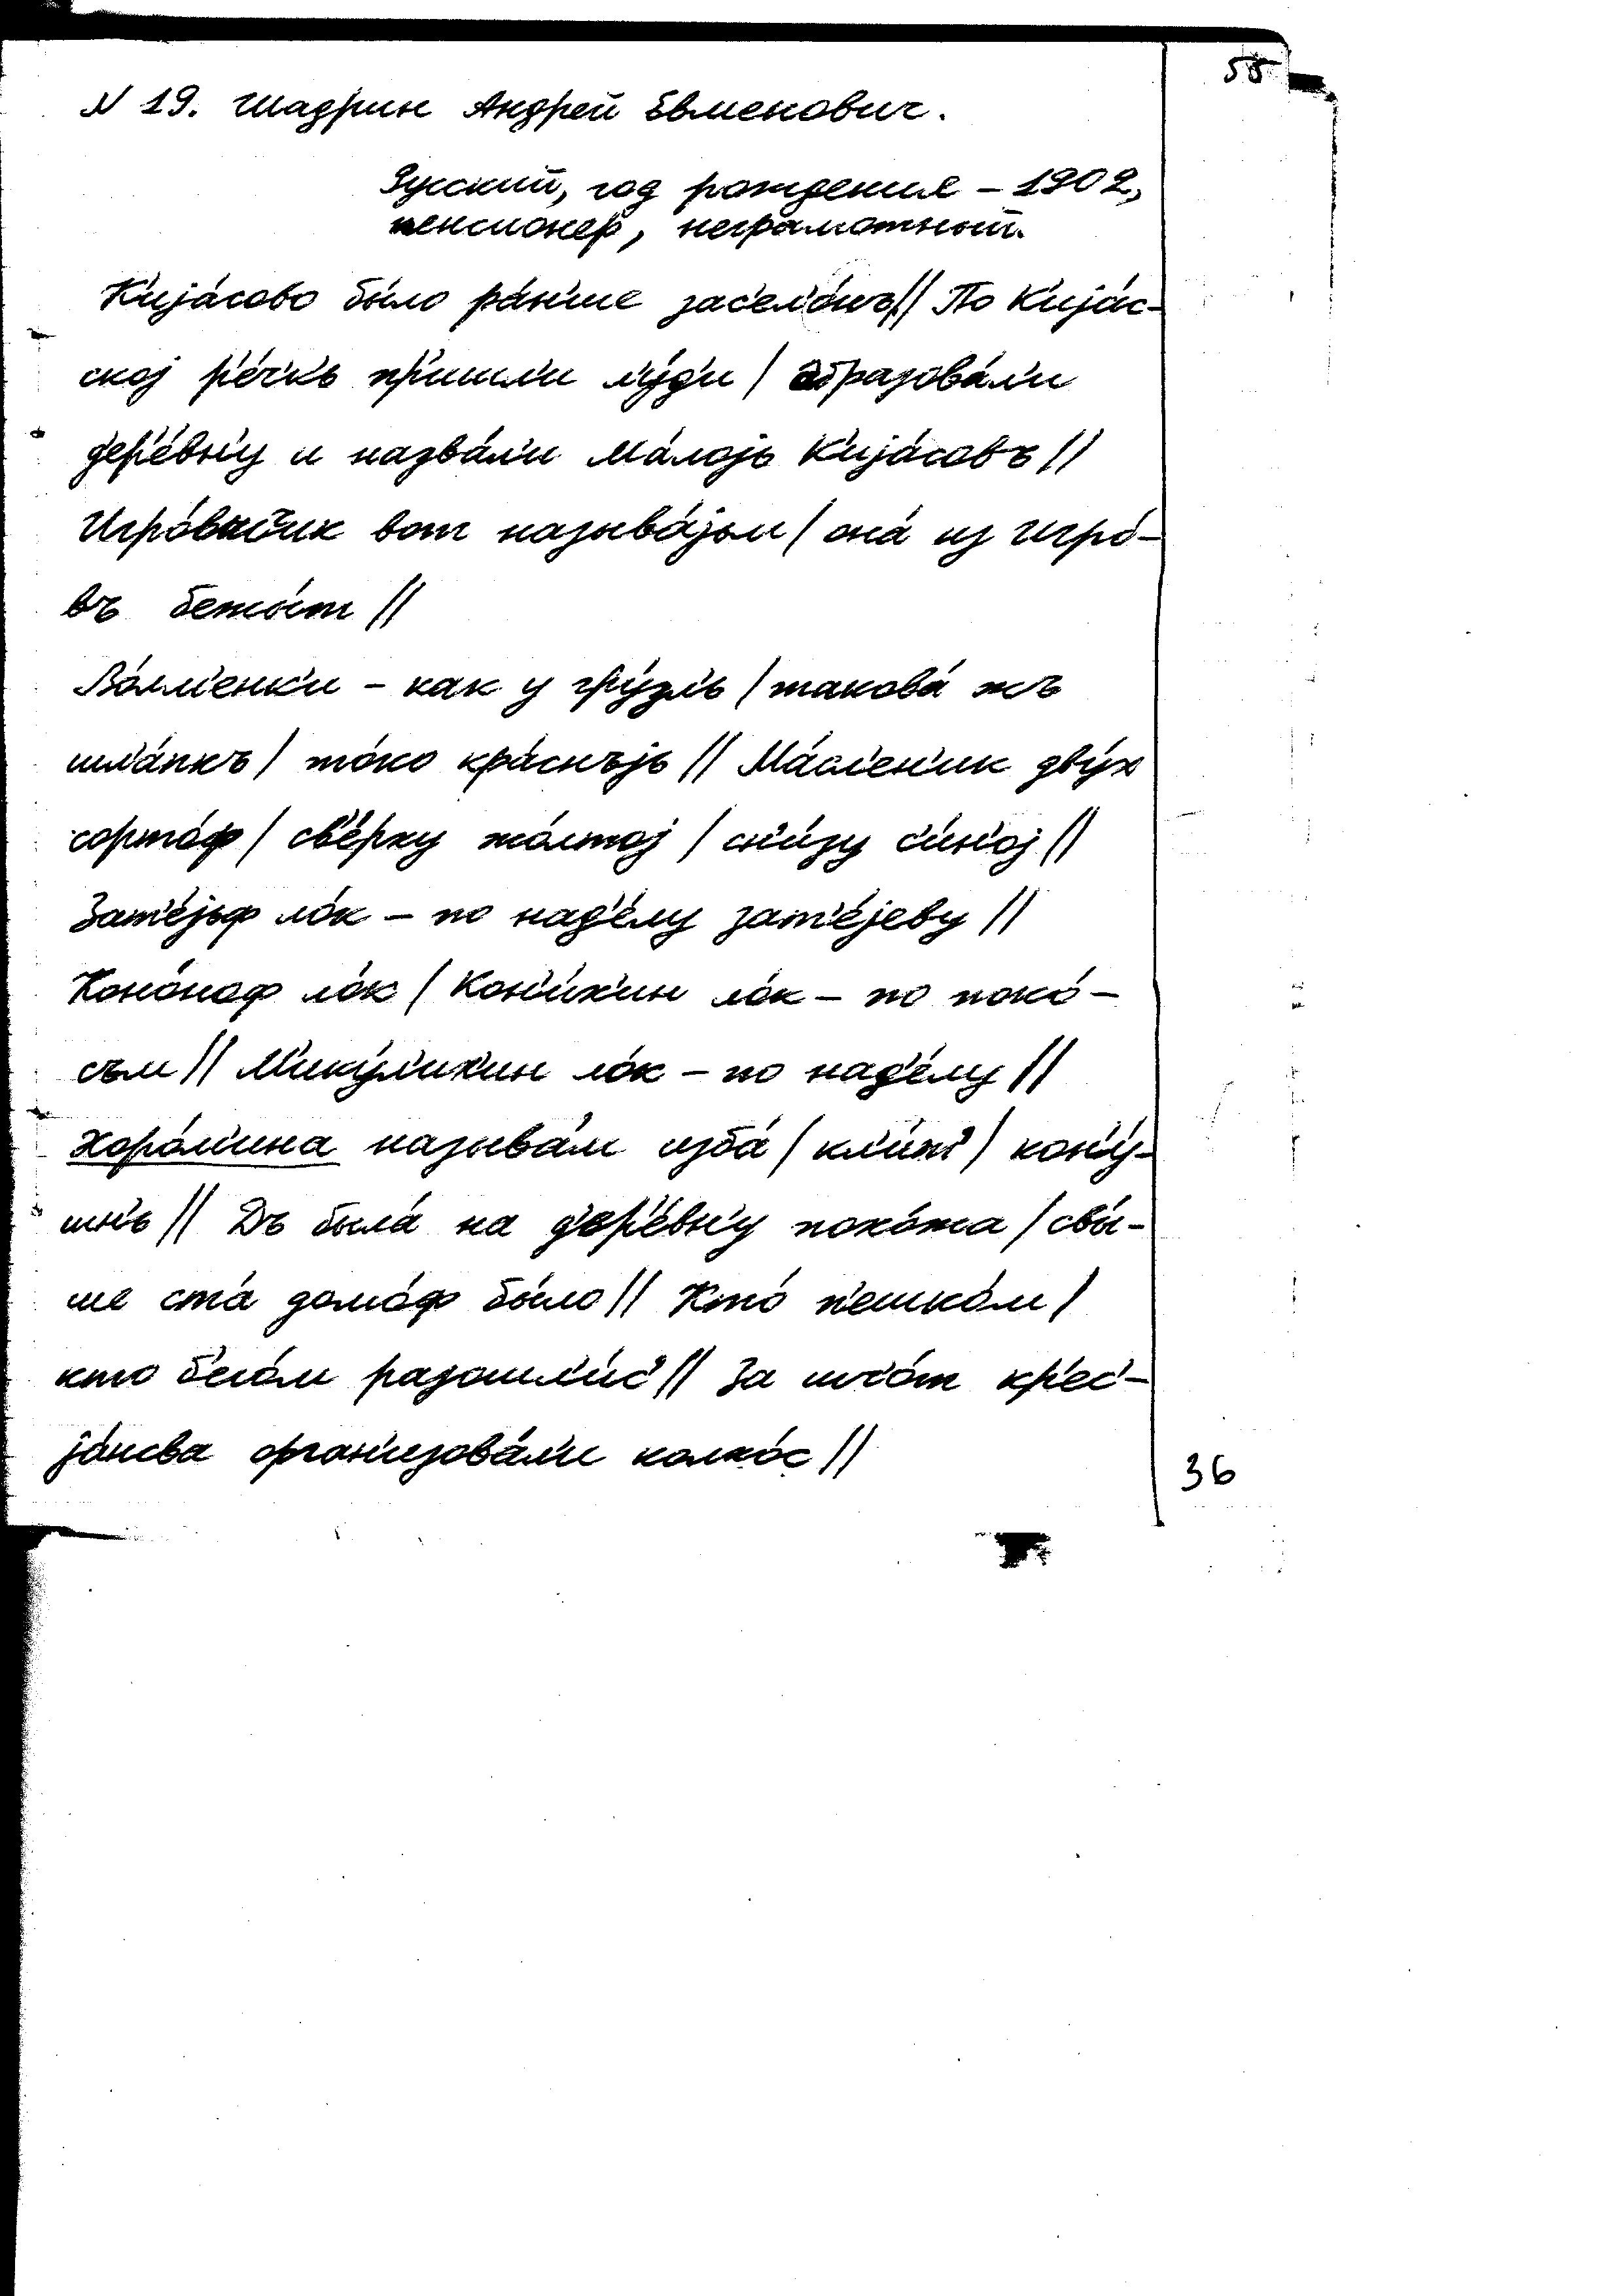 55
N 19. Шадрин Андрей Евменович.
Русский, год рождения – 1902,
пенсионер, неграмотный.
К'иjáсово бы́ло ра́н'ше зас'ел'о́нъ // По К'иjáс-
скоj р'е́чкь пр'ишл'и л'у́д'и / абразова́л'и
д'ер'е́вн'у и назва́л'и Ма́лоjь К'иjáсовъ //
Игро́вчик вот называ́jьм / она́ из Игро́-
въ бежы́т //
Во́лм'енк'и – как у гру́зд'ь / такова́ жъ
шл'а́пкъ / то́ко кра́снъjь // Ма́сл'ен'ик дву́х
сорто́ф / св'е́рху жо́лтоj / сн'и́зу с'и́н'оj //
Зат'е́jьф ло́к – по над'е́лу зат'е́jеву //
Коно́ноф ло́к / Кон'и́х'ин ло́к – по поко́-
съм // М'ику́л'их'ин ло́к – по над'е́лу //
Хоро́м'ина называ́м изба́ / кл'и́т' / кон'у́-
шн'ь // Дъ была́ на д'ер'е́вн'у похо́жа / свы́-
ше ста́ домо́ф бы́ло // Кто́ п'ешко́м /
кто б'его́м разошл'и́с' // За шчо́т кр'ес'-
jа́нсва орган'изова́л'и колхо́с //
36